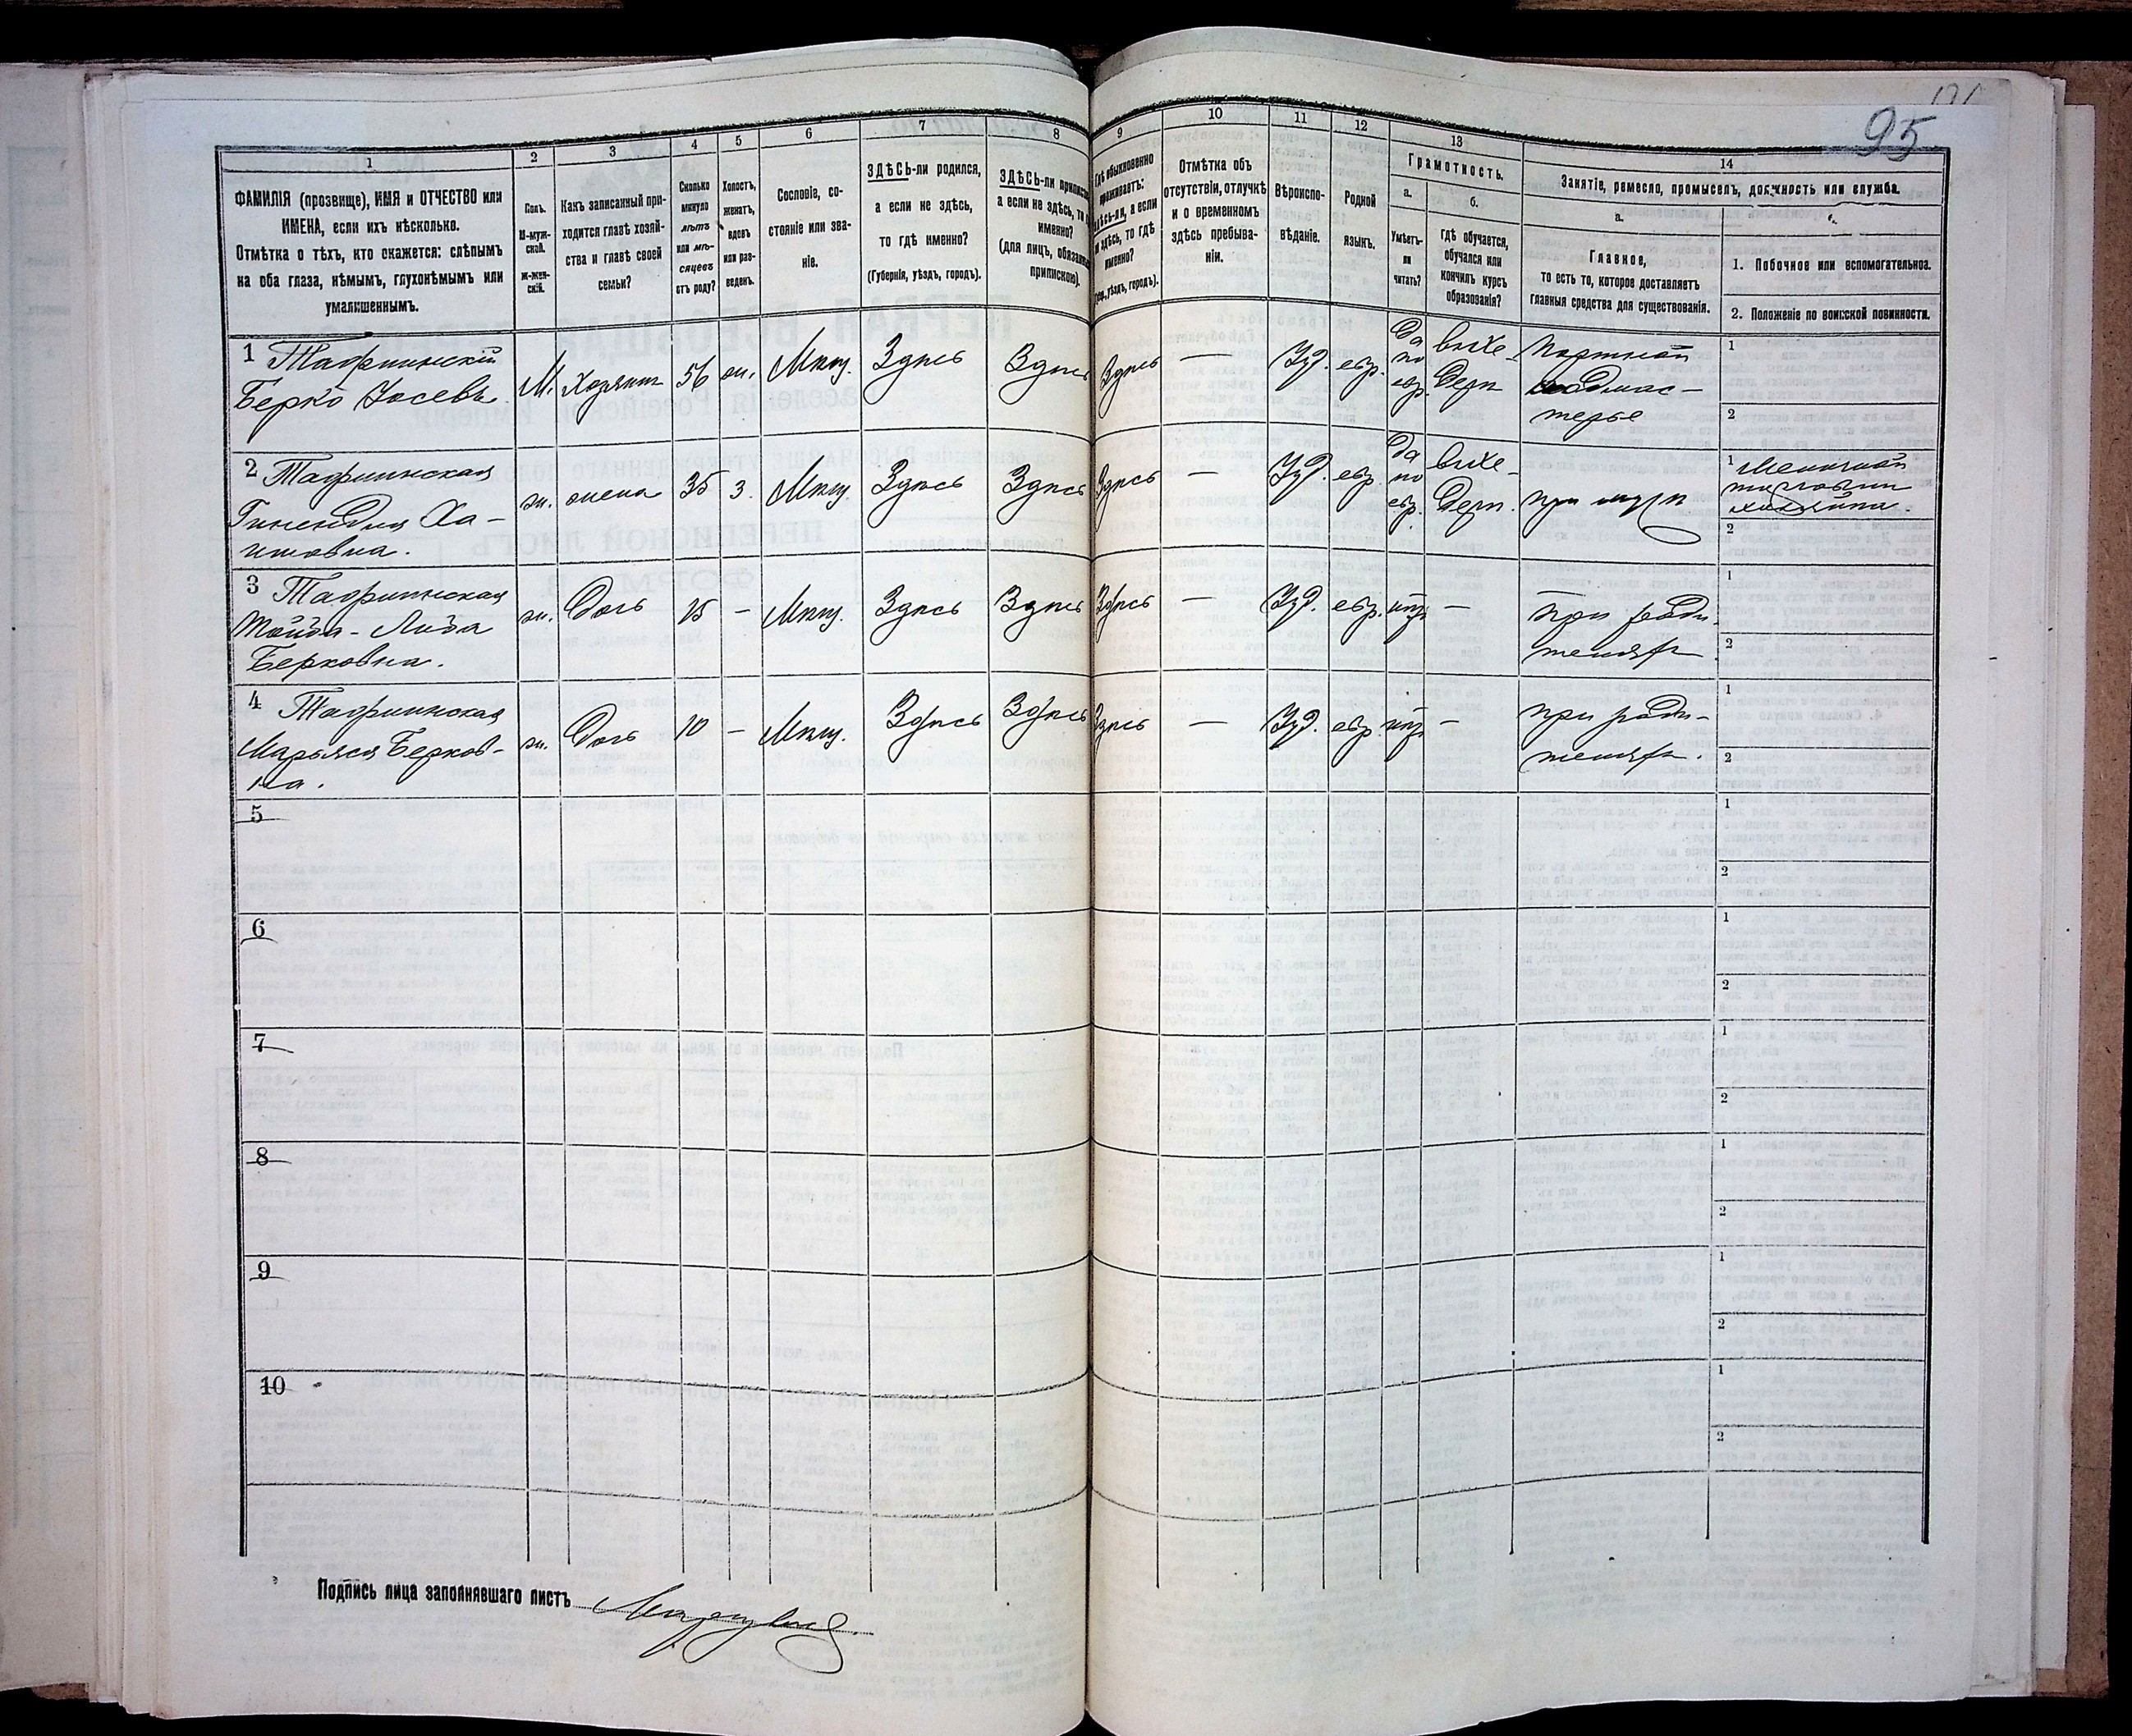 95
1
2
3
4
5
6
7
8
9
10
11
12
13
14
ФАМИЛІЯ (прозвище), ИМЯ и ОТЧЕСТВО или
ИМЕНА, если ихъ нѣсколько.
Отмѣтка о тѣхъ, кто окажется: слѣпымъ
на оба глаза, нѣмымъ, глухонѣмымъ или
умалишеннымъ.
Полъ.
М-муж-
ской.
Ж-жен-
скій.
Какъ записанный при-
ходится главѣ хозяй-
ства и главѣ своей
семьи?
Сколько
минуло
лѣтъ
или мѣ-
сяцевъ
отъ роду?
Холостъ,
женатъ,
вдовъ
или раз-
веденъ.
Сословіе, со-
стояніе или зва-
ніе.
ЗДѢСЬ-ли родился,
а если не здѣсь,
то гдѣ именно?
(Губернія, уѣздъ, городъ).
ЗДѢСЬ-ли
а если не здѣсь,
именно?
(для лицъ,
припискою).
Гдѣ обыкновенно
проживаетъ:
здѣсь-ли, а если
не здѣсь, то гдѣ
именно?
уѣздъ, городъ).
Отмѣтка объ
отсутствіи, отлучкѣ
и о временномъ
здѣсь пребыва-
ніи.
Вѣроиспо-
вѣданіе.
Родной
языкъ.
Грамотность.
а.
б.
Умѣетъ-
ли
читать?
Гдѣ обучается,
обучался или
кончилъ курсъ
образованія?
Занятіе, ремесло, промыселъ, должность или служба.
а.
Главное,
то есть то, которое доставляетъ
главныя средства для существованія.
1. Побочное или вспомогательное.
2. Положеніе по воинской повинности.
1
Берко Іосевъ
М.
хозяинъ
56
жен.
Мѣщ.
Здѣсь
Здѣсь
Здѣсь
—
Іуд.
евр.
Да
по
евр.
въ хе-
дерѣ
Портной
подмас-
терье
1
2
2
Ха-
ж.
жена
35
З.
Мѣщ.
Здѣсь
Здѣсь
Здѣсь
—
Іуд.
евр.
Да
по
евр.
въ хе-
дерѣ.
при мужѣ
1
2
3
Берковна.
ж.
Дочь
15
—
Мѣщ.
Здѣсь
Здѣсь
Здѣсь
—
Іуд.
евр.
нѣтъ
—
при роди-
теляхъ.
1
2
4
Марьяся Берков-
на.
ж.
Дочь
10
—
Мѣщ.
Здѣсь
Здѣсь
Здѣсь
—
Іуд.
евр.
нѣтъ
—
при роди-
теляхъ.
1
2
5
1
2
6
1
2
7
1
2
8
1
2
9
1
2
10
1
2
Подпись лица заполнявшаго листъ